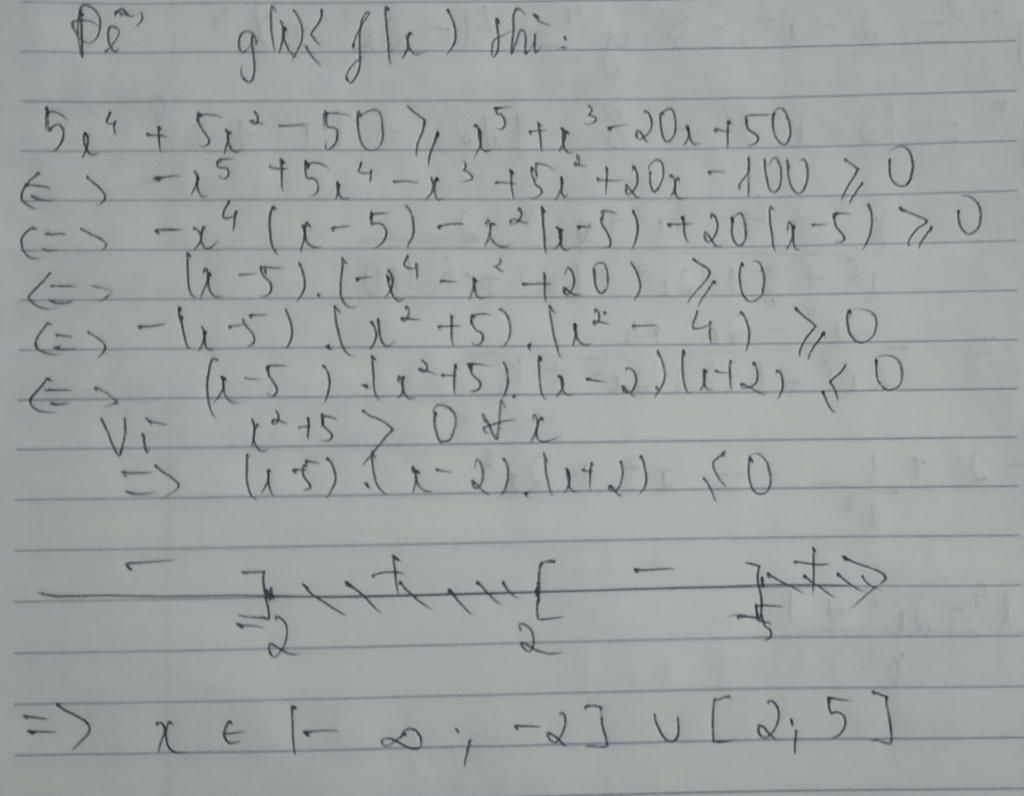 Để g(x) ≤ f(x) thì:
5x⁴ + 5x² - 50 ≥ x⁵ + x³ - 20x + 50
<=> -x⁵ + 5x⁴ - x³ + 5x² + 20x - 100 ≥ 0
<=> -x⁴ (x - 5) - x² (x - 5) + 20 (x - 5) ≥ 0
<=> (x - 5) . (-x⁴ - x² + 20) ≥ 0
<=> -(x - 5) . (x² + 5) . (x² - 4) ≥ 0
<=> (x - 5) . (x² + 5) . (x - 2) (x + 2) ≤ 0
Vì x² + 5 > 0 ∀ x
=> (x - 5) . (x - 2) . (x + 2) ≤ 0
- ] + [ - ] +
-2 2 5
=> x ∈ (-∞ ; -2] ∪ [2; 5]